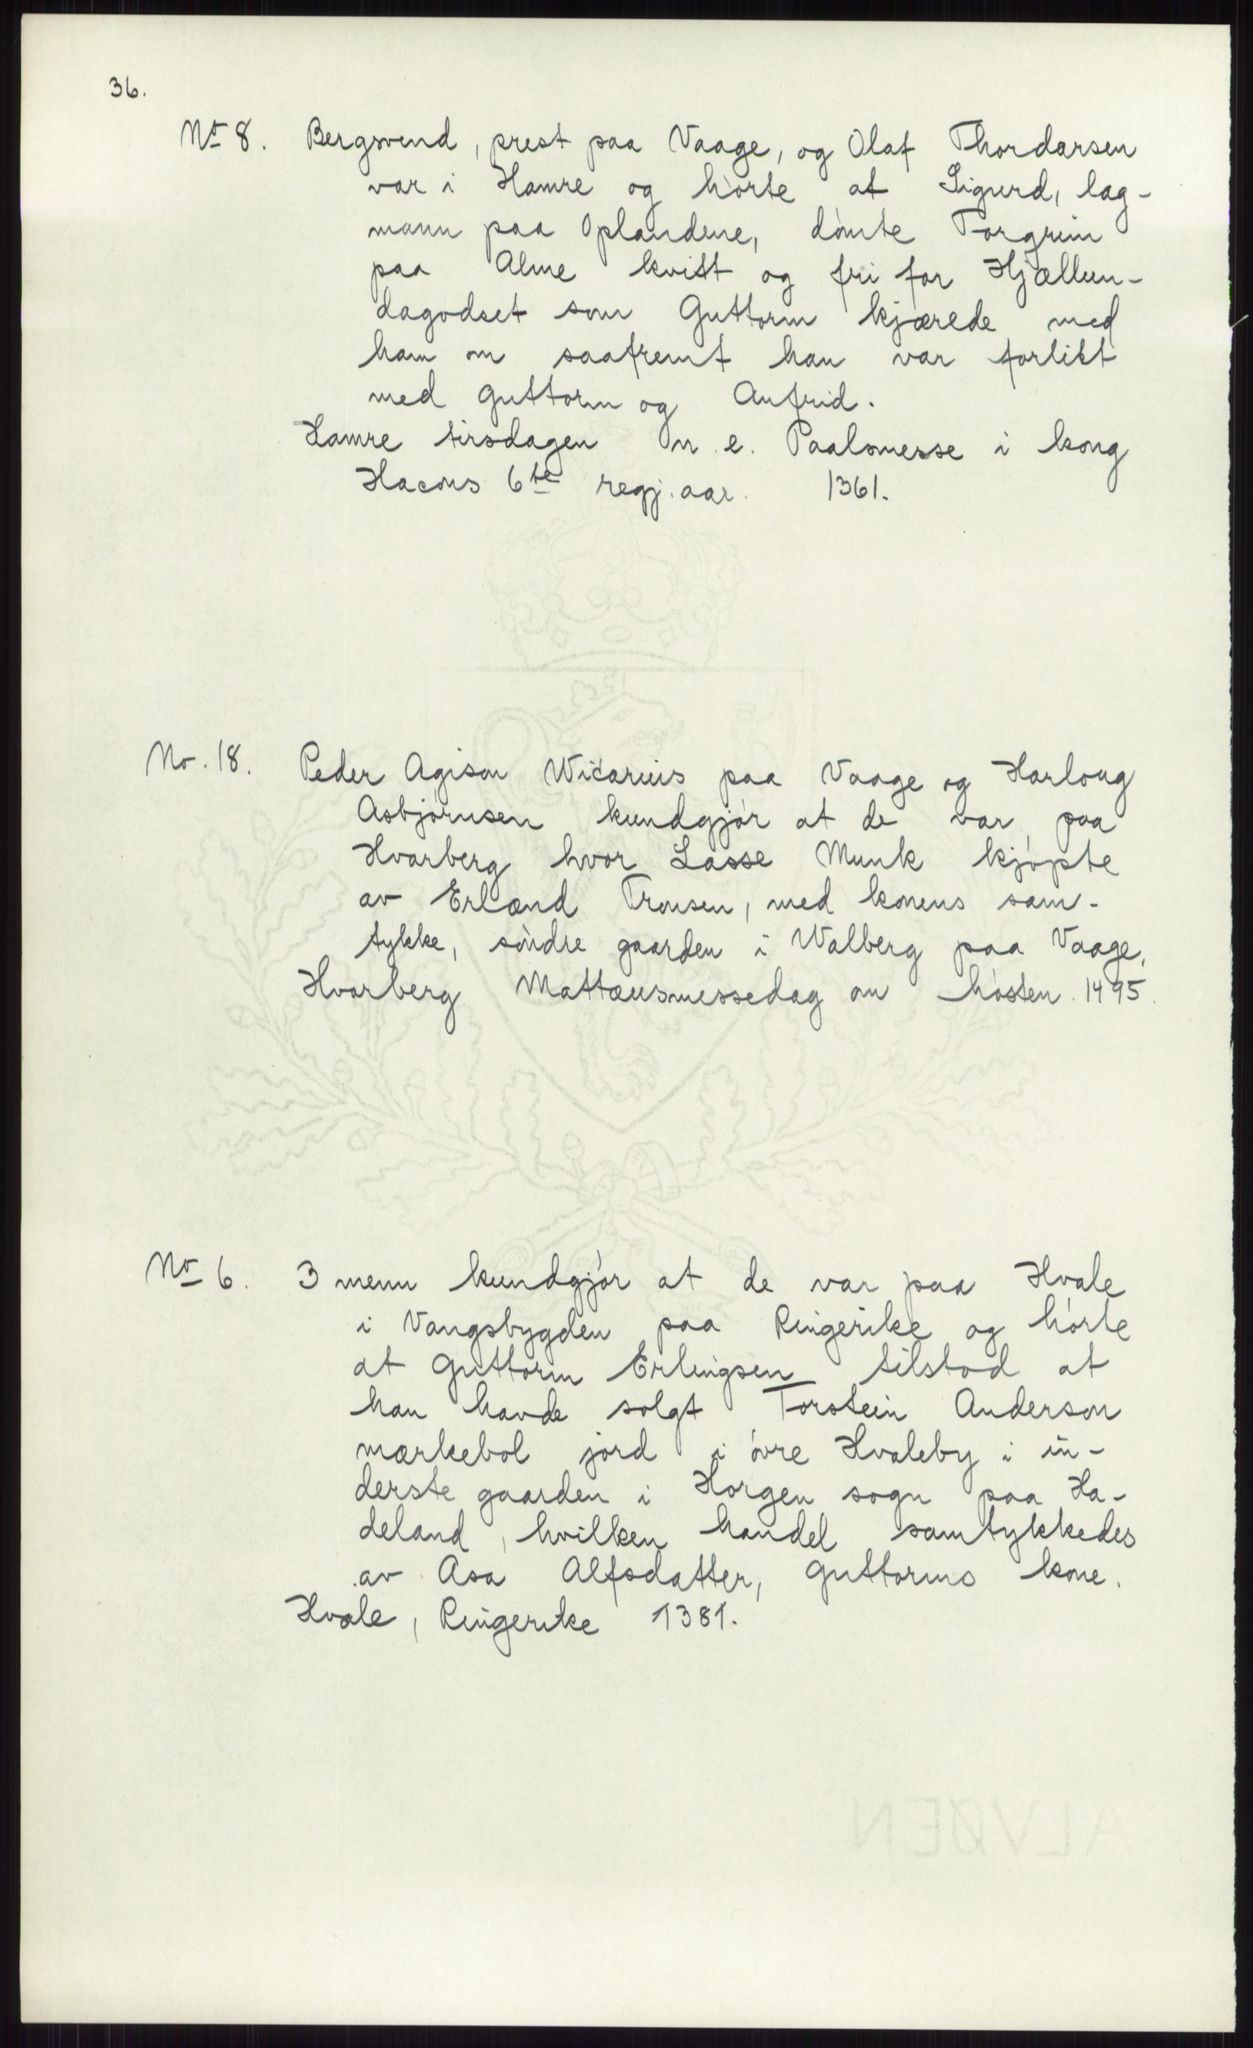 36.
Nr 8. Bergsvend, prest paa Vaage, og Olaf Thordarsen
var i Hamre og hørte at Sigurd, lag-
mann paa Oplandene, dømte Torgrim
paa Alme kvitt og fri for Hjællun-
dagodset som Guttorm kjærede med
ham om saafremt han var forlikt
med Guttorm og Anfrid.
Hamre tirsdagen n. e. Paalsmesse i kong
Hacons 6te regj. aar. 1361.
No. 18. Peder Agison Wicarius paa Vaage og Harloug
Asbjørnsen kundgjør at de var paa
Hvarberg hvor Lasse Munk kjøpte
av Erlænd Tronsen, med konens sam-
tykke, søndre gaarden i Walberg paa Vaage.
Hvarberg Mattæusmessedag om høsten. 1495.
No 6. 3 menn kundgjør at de var paa Hvale
i Vangsbygden paa Ringerike og hørte
at Guttorm Erlingsen tilstod at
han havde solgt Torstein Anderson
mærkebol jord i øvre Hvaleby i in-
derste gaarden i Horgen sogn paa Ha-
deland, hvilken handel samtykkedes
av Asa Alfsdatter, Guttorms kone.
Hvale, Ringerike 1381.
ALVØEN